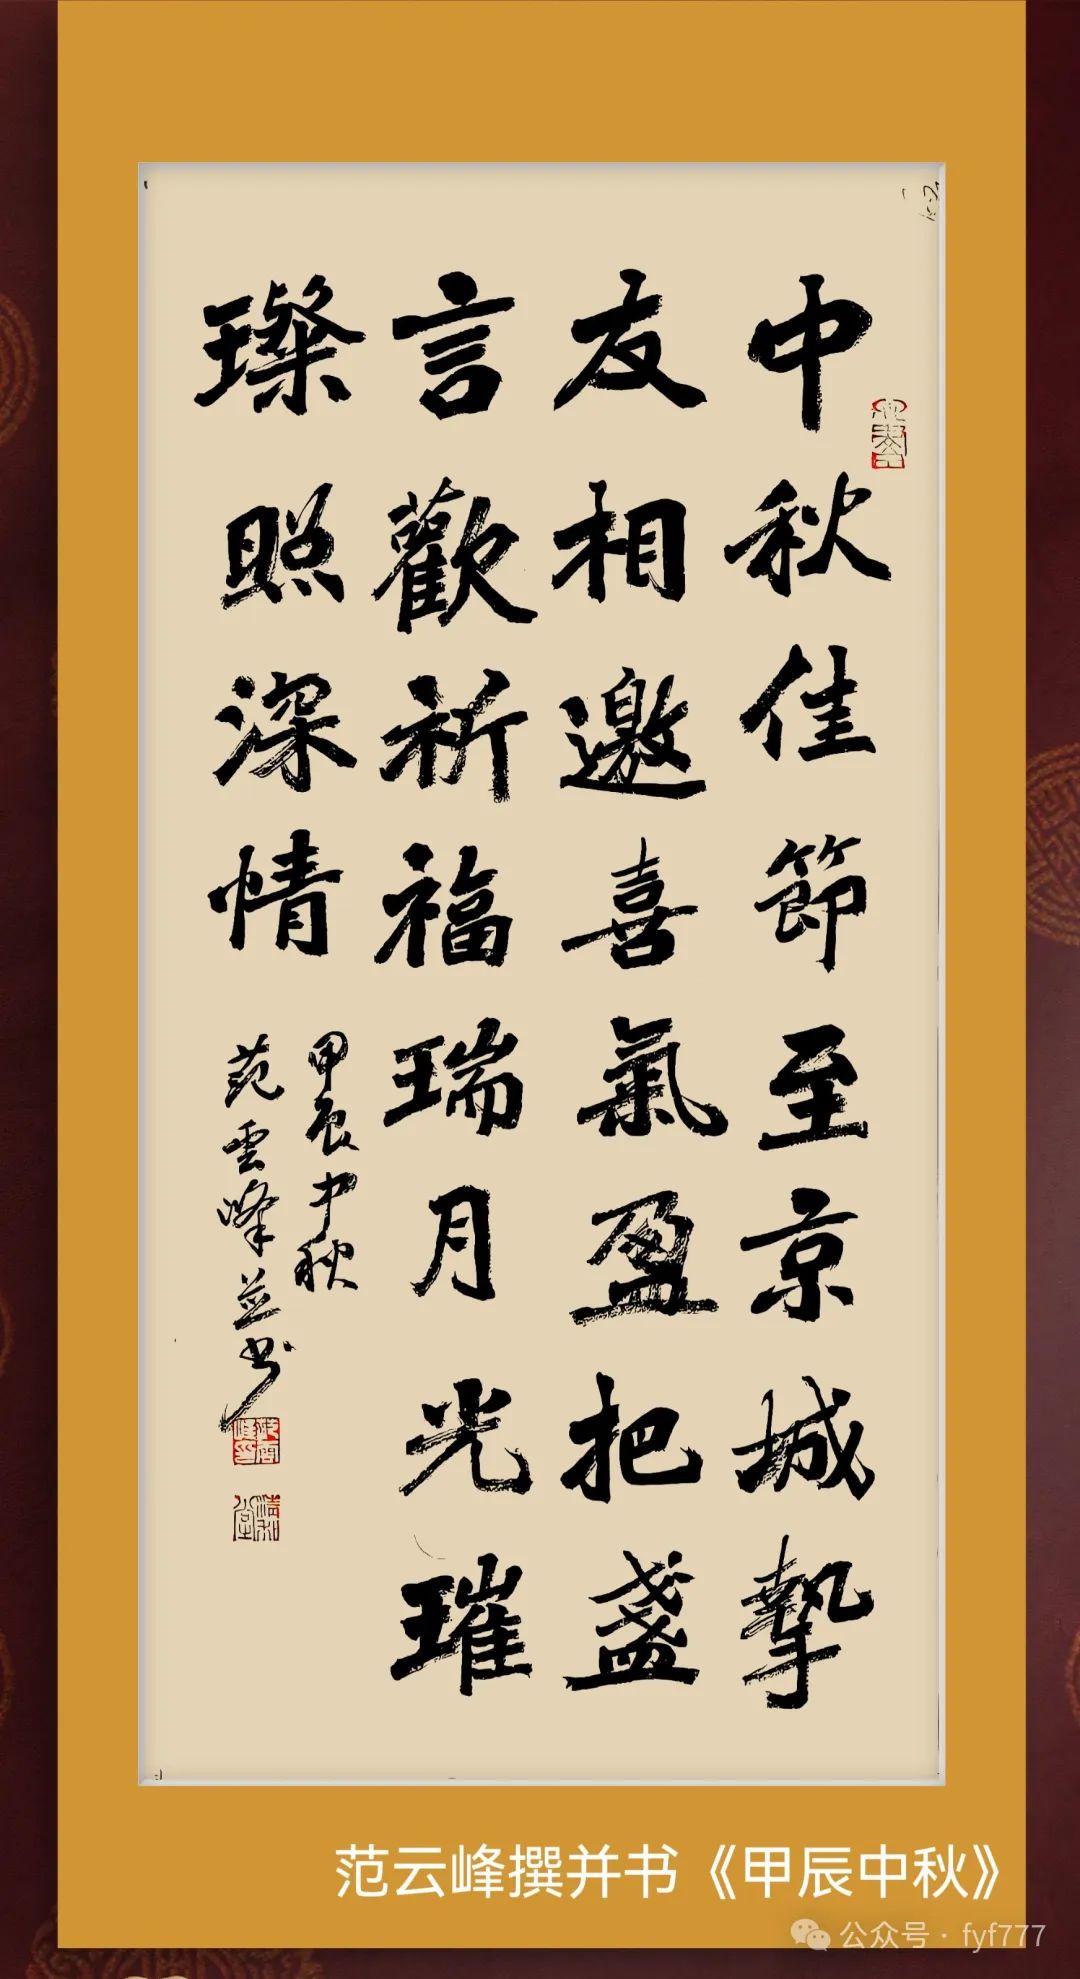 中秋佳節至京城摯
友相邀喜氣盈把盞
言歡祈福瑞月光璀
璨照深情
甲辰中秋
范雲峰並书
范云峰撰并书《甲辰中秋》
公众号·fyf777